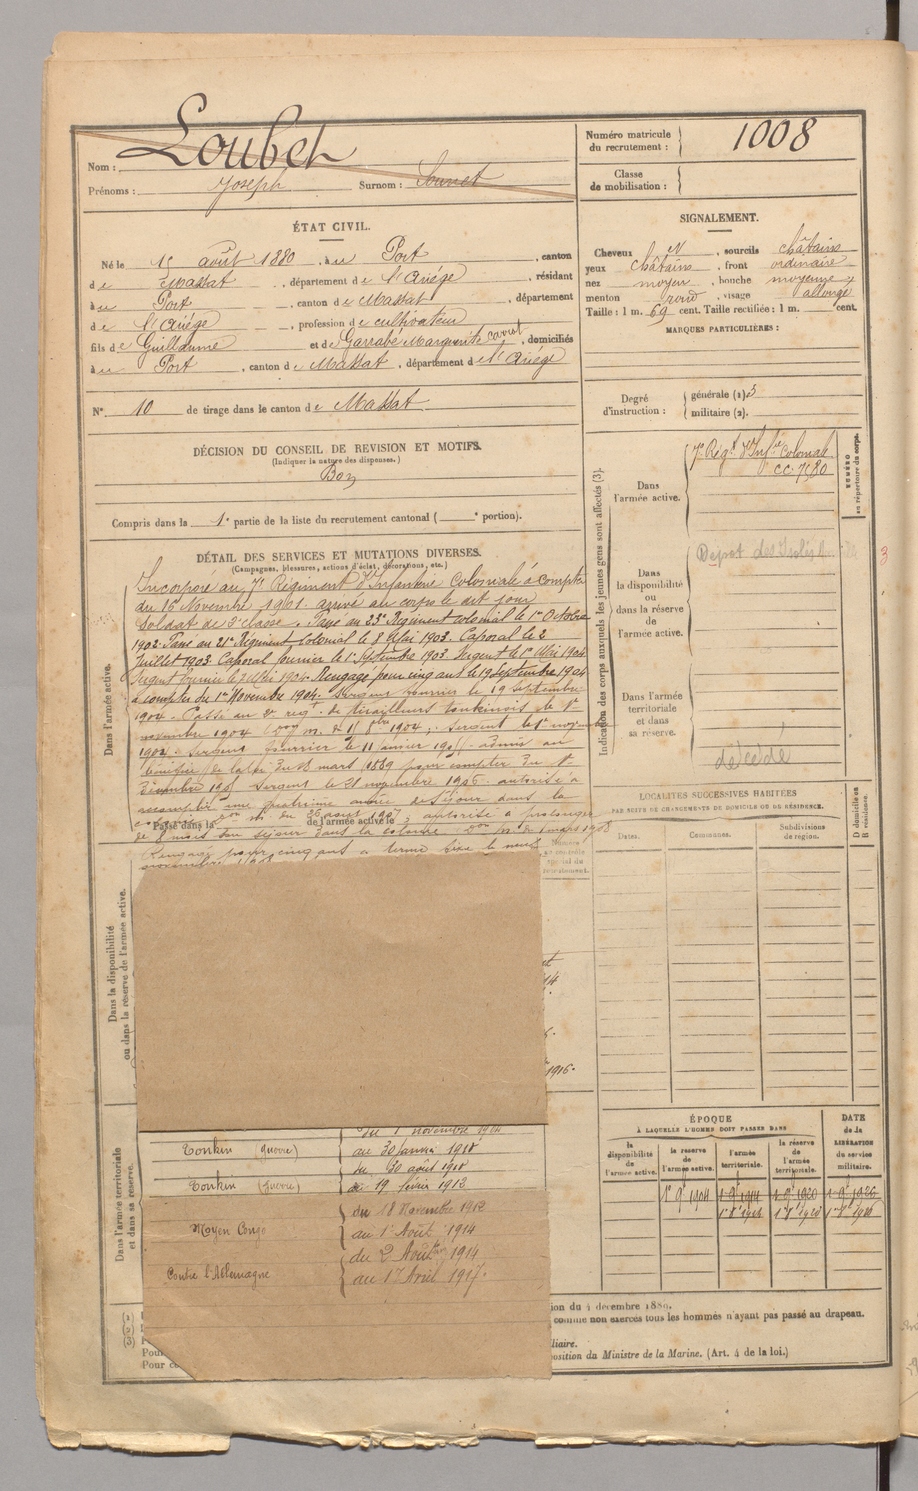 Nom : Loubet
Prénoms : Joseph Surnom :
Numéro matricule du recrutement : 1008
Classe de mobilisation :
ÉTAT CIVIL.
Né le 15 août 1880, à u Port, canton
de Massat, département de l'Ariége, résidant
à u Port, canton de Massat, département
de l'Ariége, profession de cultivateur
fils de Guillaume et de Garrabé Marguerite, domiciliés
à u Port, canton de Massat, département de l'Ariége
N° 10 de tirage dans le canton de Massat
DÉCISION DU CONSEIL DE REVISION ET MOTIFS.
(Indiquer la nature des dispenses.)
Bon
Compris dans la 1e partie de la liste du recrutement cantonal ( e portion).
SIGNALEMENT.
Cheveux et, sourcils châtains
yeux châtains, front ordinaire
nez moyen, bouche moyenne
menton rond, visage allongé
Taille : 1 m. 69 cent. Taille rectifiée : 1 m. cent.
MARQUES PARTICULIÈRES :
Degré d'instruction : générale (1) 3
militaire (2).
Indication des corps auxquels les jeunes gens sont affectés (3).
NUMÉRO au répertoire du corps.
Dans l'armée active.
7e Régt d'Infie Coloniale
cc. 7580
Dans la disponibilité ou dans la réserve de l'armée active.
Dépot des Isolés
3
Dans l'armée territoriale et dans sa réserve.
décédé
DÉTAIL DES SERVICES ET MUTATIONS DIVERSES.
(Campagnes, blessures, actions d'éclat, décorations, etc.)
Dans l'armée active.
Incorporé au 7e Régiment d'Infanterie Coloniale à compter
du 16 Novembre 1901. arrivé au corps le dit jour
Soldat de 2e classe. Passé au 23e Régiment colonial le 1er Octobre
1902. Passé au 21e Régiment Colonial le 8 Mai 1903. Caporal le 2
Juillet 1903. Caporal fourrier le 1er Septembre 1903. Sergent le 1er Mai 1904
Sergent fourrier le 2 Mai 1904. Rengagé pour cinq ans le 19 septembre 1904
à compter du 1er Novembre 1904. Sergent fourrier le 19 septembre
1904. Passé au 2e régt de tirailleurs tonkinois le 1er
novembre 1904; Sergent le 1er novembre
1904. Sergent fourrier le 11 janvier 1905. admis au
bénéfice de la loi du 18 mars 1889 pour compter du 1er
Décembre 190 Sergent le 21 novembre 1906. autorisé à
accomplir une quatrième année de séjour dans la
colonie du 26 août 1907, autorisé à prolonger
Passé dans la de l'armée active le
de 8 mois son séjour dans la colonie m. du 1 mars 1908
Rengagé pour cinq ans à terme fixe le neuf
novembre
Dans la disponibilité ou dans la réserve de l'armée active.
1916.
Dans l'armée territoriale et dans sa réserve.
du 1 novembre 1904
Tonkin (guerre) au 30 janvier 1910
du 20 août 1910
Tonkin (guerre) au 19 février 1912
du 18 Novembre 1912
Moyen Congo au 1er Août 1914
du 2 Août 1914
Contre l'Allemagne au 17 Avril 1917.
LOCALITÉS SUCCESSIVES HABITÉES
PAR SUITE DE CHANGEMENTS DE DOMICILE OU DE RÉSIDENCE.
Dates. Communes. Subdivisions de région. D domicile ou R résidence.
ÉPOQUE
À LAQUELLE L'HOMME DOIT PASSER DANS
la disponibilité de l'armée active. la réserve de l'armée active. l'armée territoriale. la réserve de l'armée territoriale.
DATE de la LIBÉRATION du service militaire.
1er 9e 1904 1-9e 1914 1-9e 1920 1-9e 1926
(1)
(2)
(3)
ion du 4 décembre 1889.
comme non exercés tous les hommes n'ayant pas passé au drapeau.
iliaire.
position du Ministre de la Marine. (Art. 4 de la loi.)